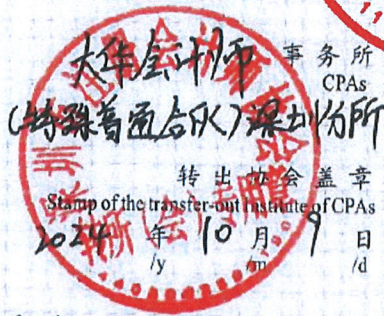 大华会计师 事务所
CPAs
(特殊普通合伙)深圳分所
转出协会盖章
Stamp of the transfer-out institute of CPAs
2024 年 10 月 9 日
/y /m /d